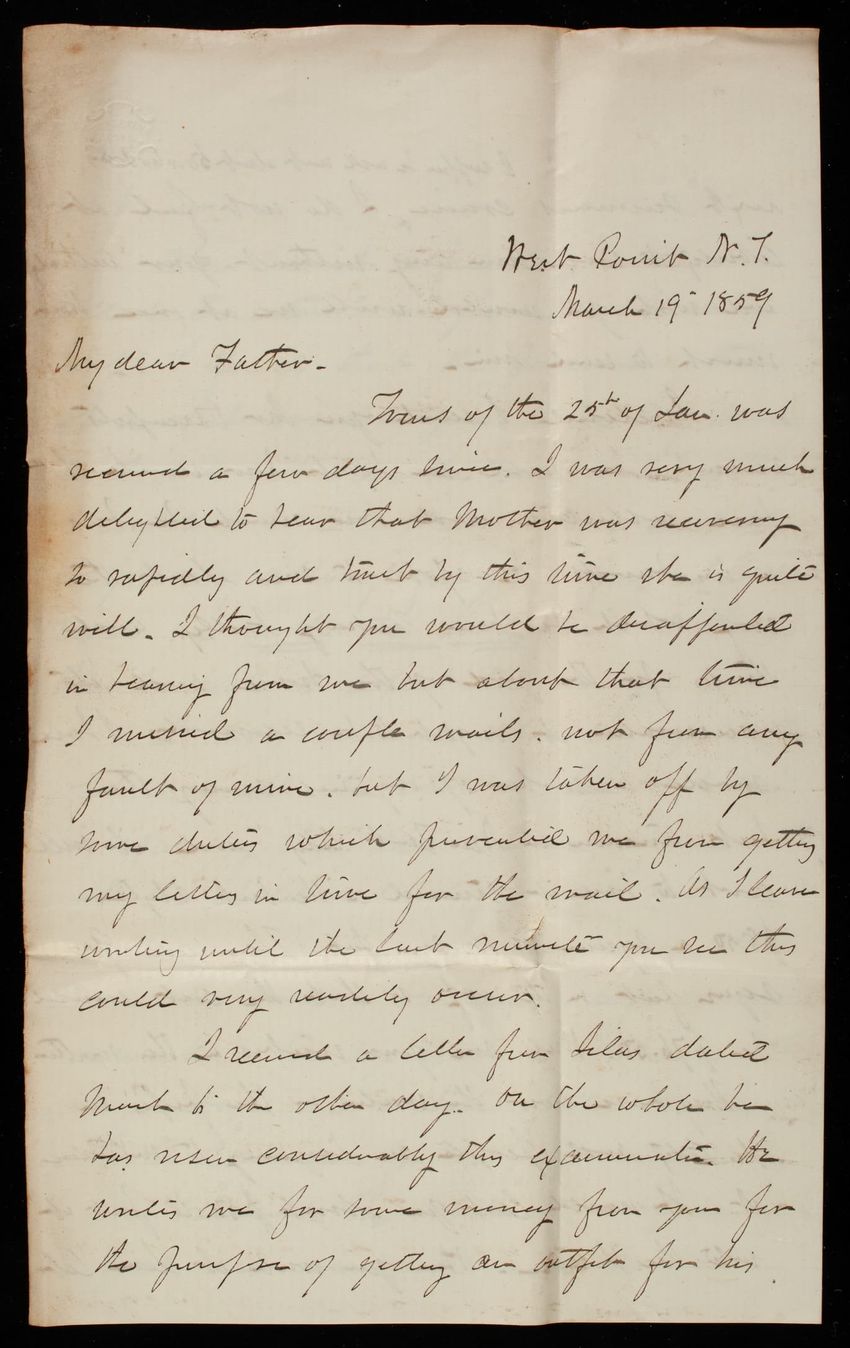 West Point N.Y.
March 19th 1859
My dear Father.
Yours of the 25th of Jan. was
received a few days since. I was very much
delighted to hear that Mother was recovering
so rapidly and trust by this time she is quite
well. I thought you would be disappointed
in hearing from me but about that time
I missed a couple mails. not from any
fault of mine. but I was taken off by
some duties which prevented me from getting
my letters in time for the mail. As I leave
writing until the last minute you see this
could very readily occur.
I received a letter from Silas dated
March the other day. On the whole he
has risen considerably this examination. He
writes me for some money from you for
the purpose of getting an outfit for his